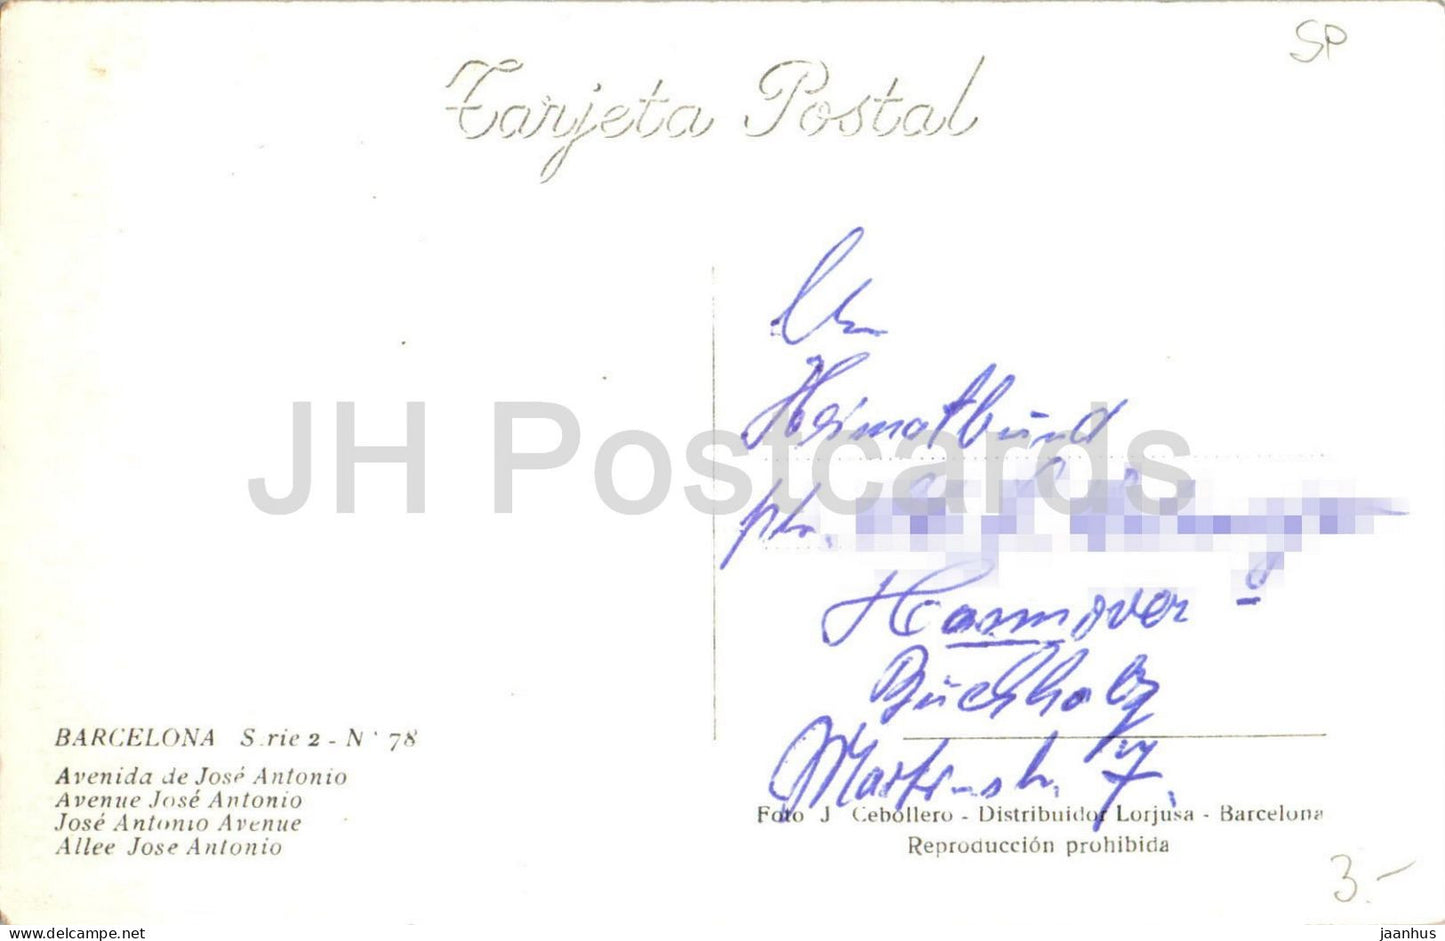 SP
Tarjeta Postal
An
Heimatbund
Hannover -
Buchholz
7.
JH Postcards
BARCELONA S.rie 2 - N° 78
Avenida de José Antonio
Avenue José Antonio
José Antonio Avenue
Allee Jose Antonio
Foto J Cebollero - Distribuidor Lorjusa - Barcelona
Reproducción prohibida
3.-
www.delcampe.net
jaanhus